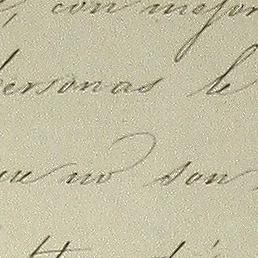 , con mejor
personas le
que no son